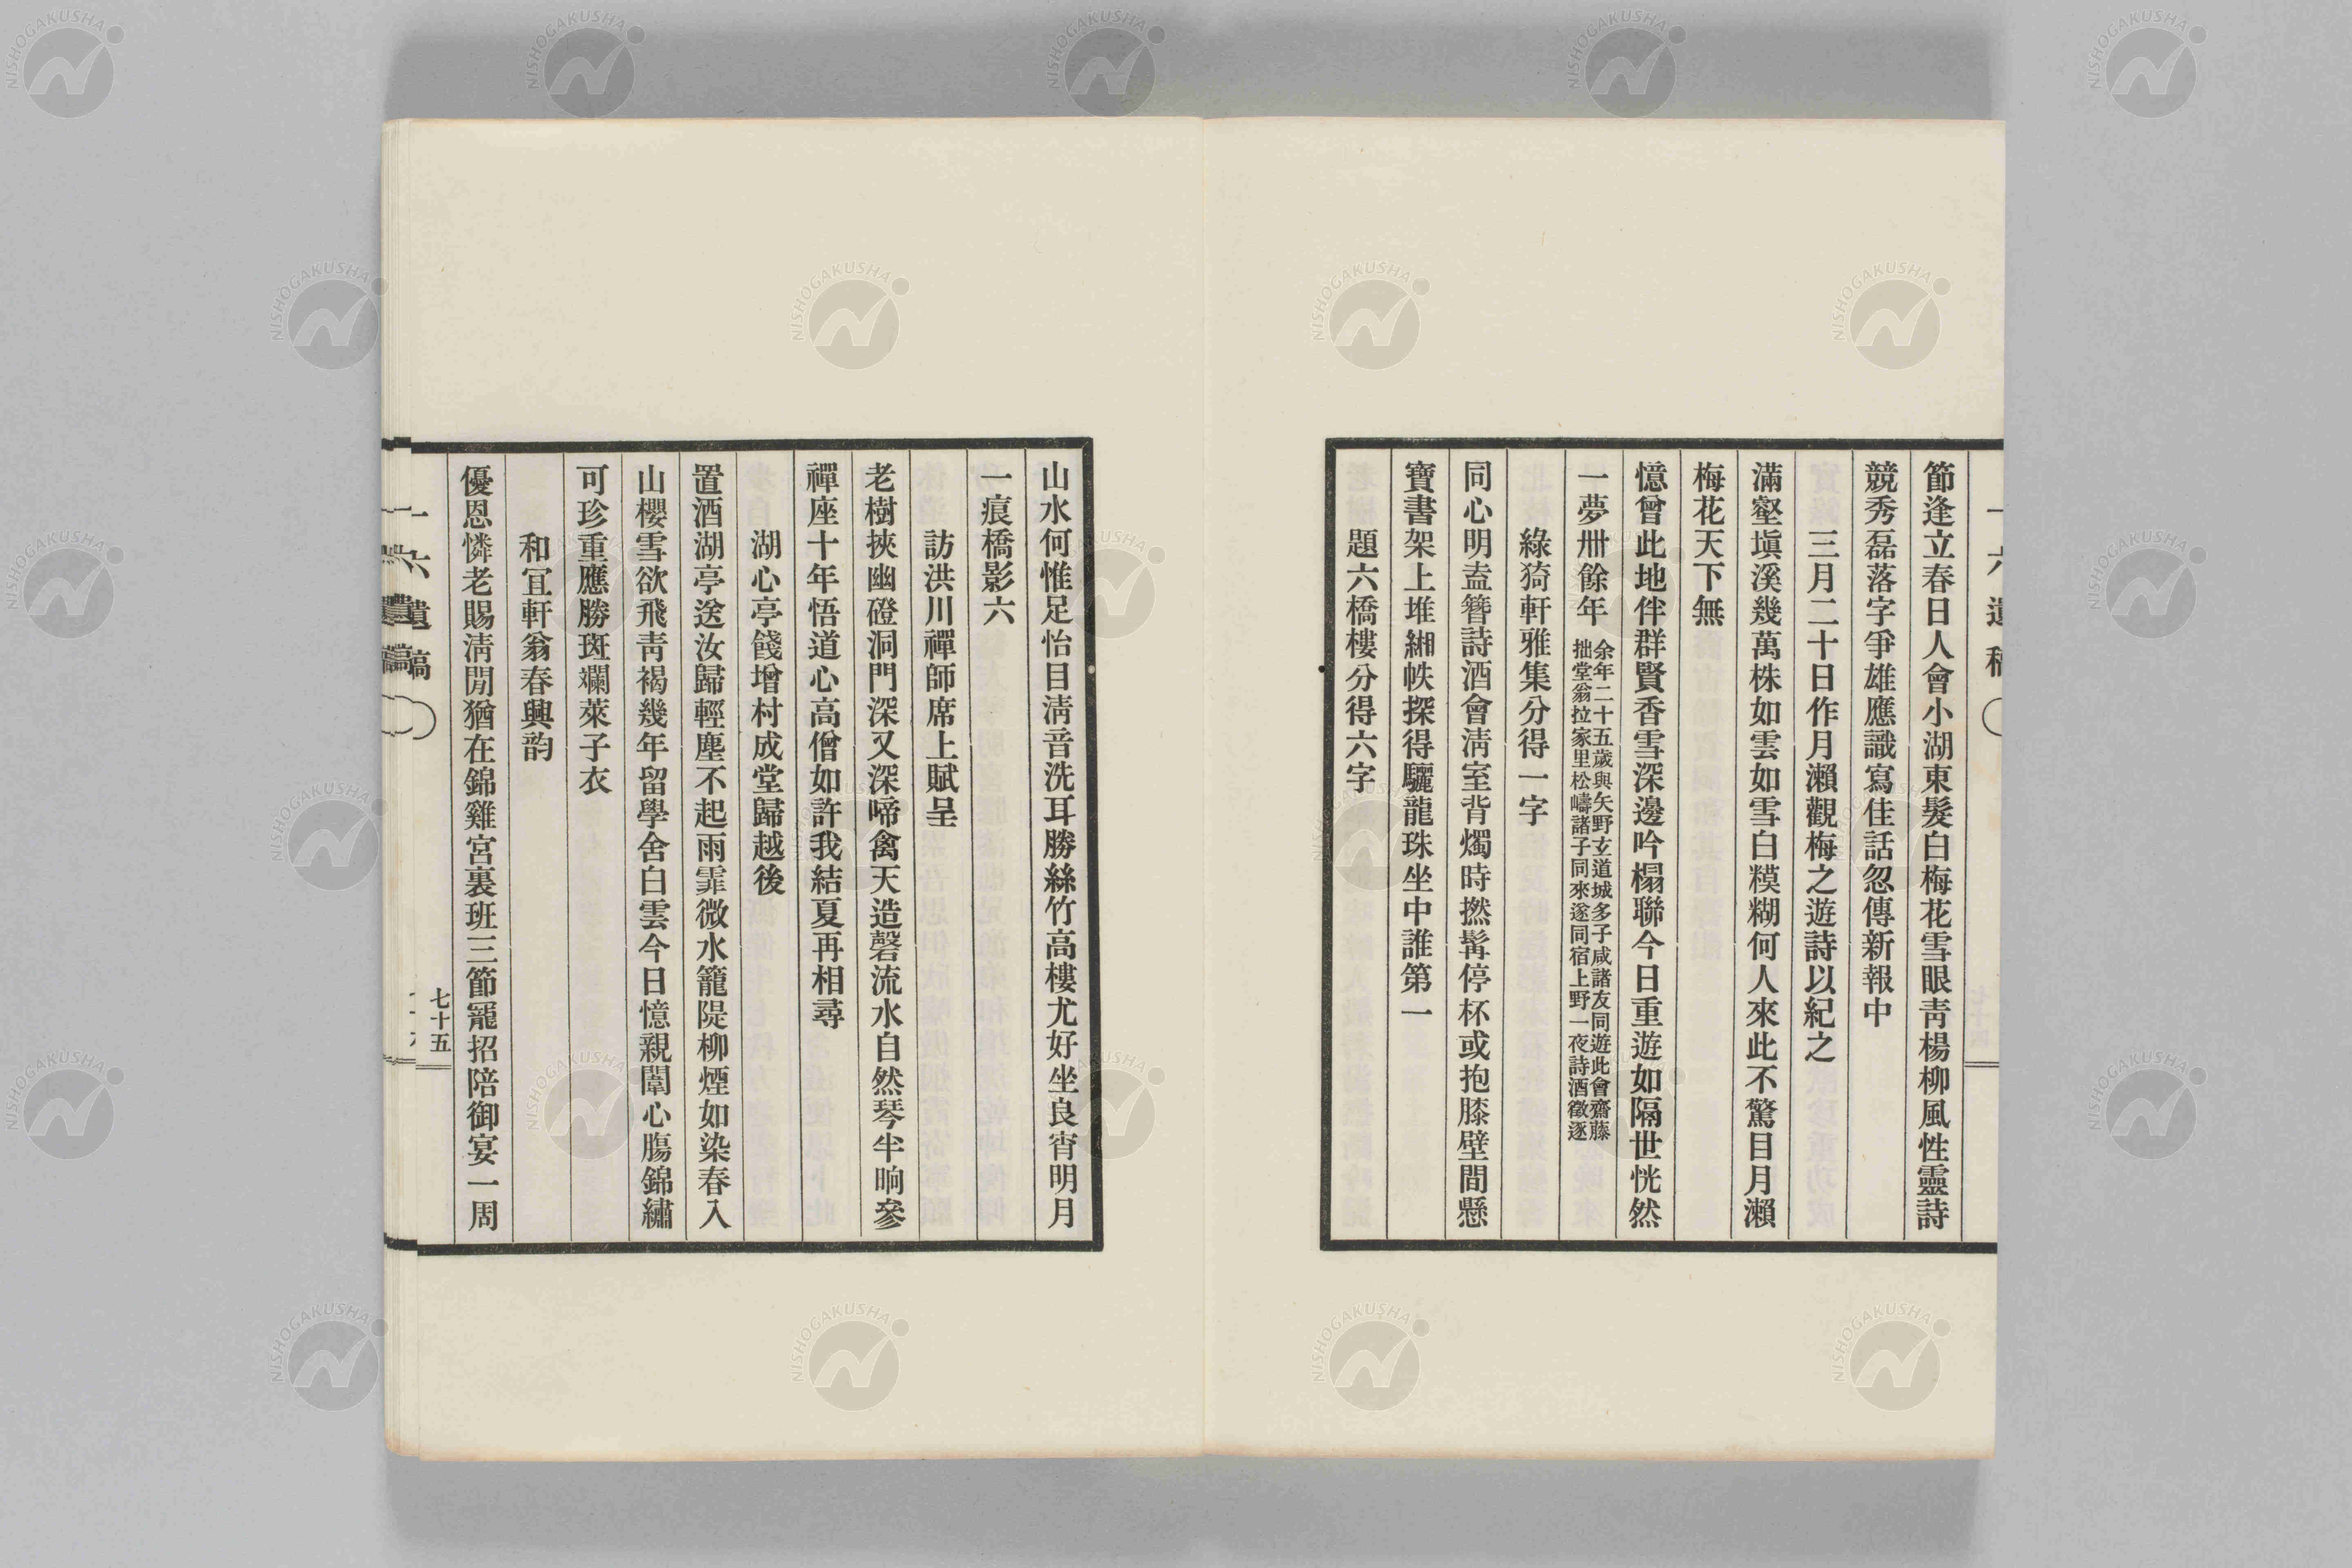 一六遺稿
節逢立春日人會小湖東髮白梅花雪眼靑楊柳風性靈詩
競秀磊落字爭雄應識寫佳話忽傳新報中
三月二十日作月瀨觀梅之遊詩以紀之
滿壑塡溪幾萬株如雲如雪白糢糊何人來此不驚目月瀨
梅花天下無
憶曾此地伴群賢香雪深邊吟榻聯今日重遊如隔世恍然
一夢卅餘年
余年二十五歲與矢野玄道城多子咸諸友同遊此會齋藤
拙堂翁拉家里松嶹諸子同來遂同宿上野一夜詩酒徵逐
綠猗軒雅集分得一字
同心明盍簪詩酒會淸室背燭時撚髯停杯或抱膝壁間懸
寶書架上堆緗帙探得驪龍珠坐中誰第一
題六橋樓分得六字
山水何惟足怡目淸音洗耳勝絲竹高樓尤好坐良宵明月
一痕橋影六
訪洪川禪師席上賦呈
老樹挾幽磴洞門深又深啼禽天造磬流水自然琴半晌參
禪座十年悟道心高僧如許我結夏再相尋
湖心亭餞增村成堂歸越後
置酒湖亭送汝歸輕塵不起雨霏微水籠隄柳煙如染春入
山櫻雪欲飛靑褐幾年留學舍白雲今日憶親闈心膓錦繡
可珍重應勝斑斕萊子衣
和宜軒翁春興韵
優恩憐老賜淸閒猶在錦雞宮裏班三節寵招陪御宴一周
一六遺稿
七十五
NISHOGAKUSHA